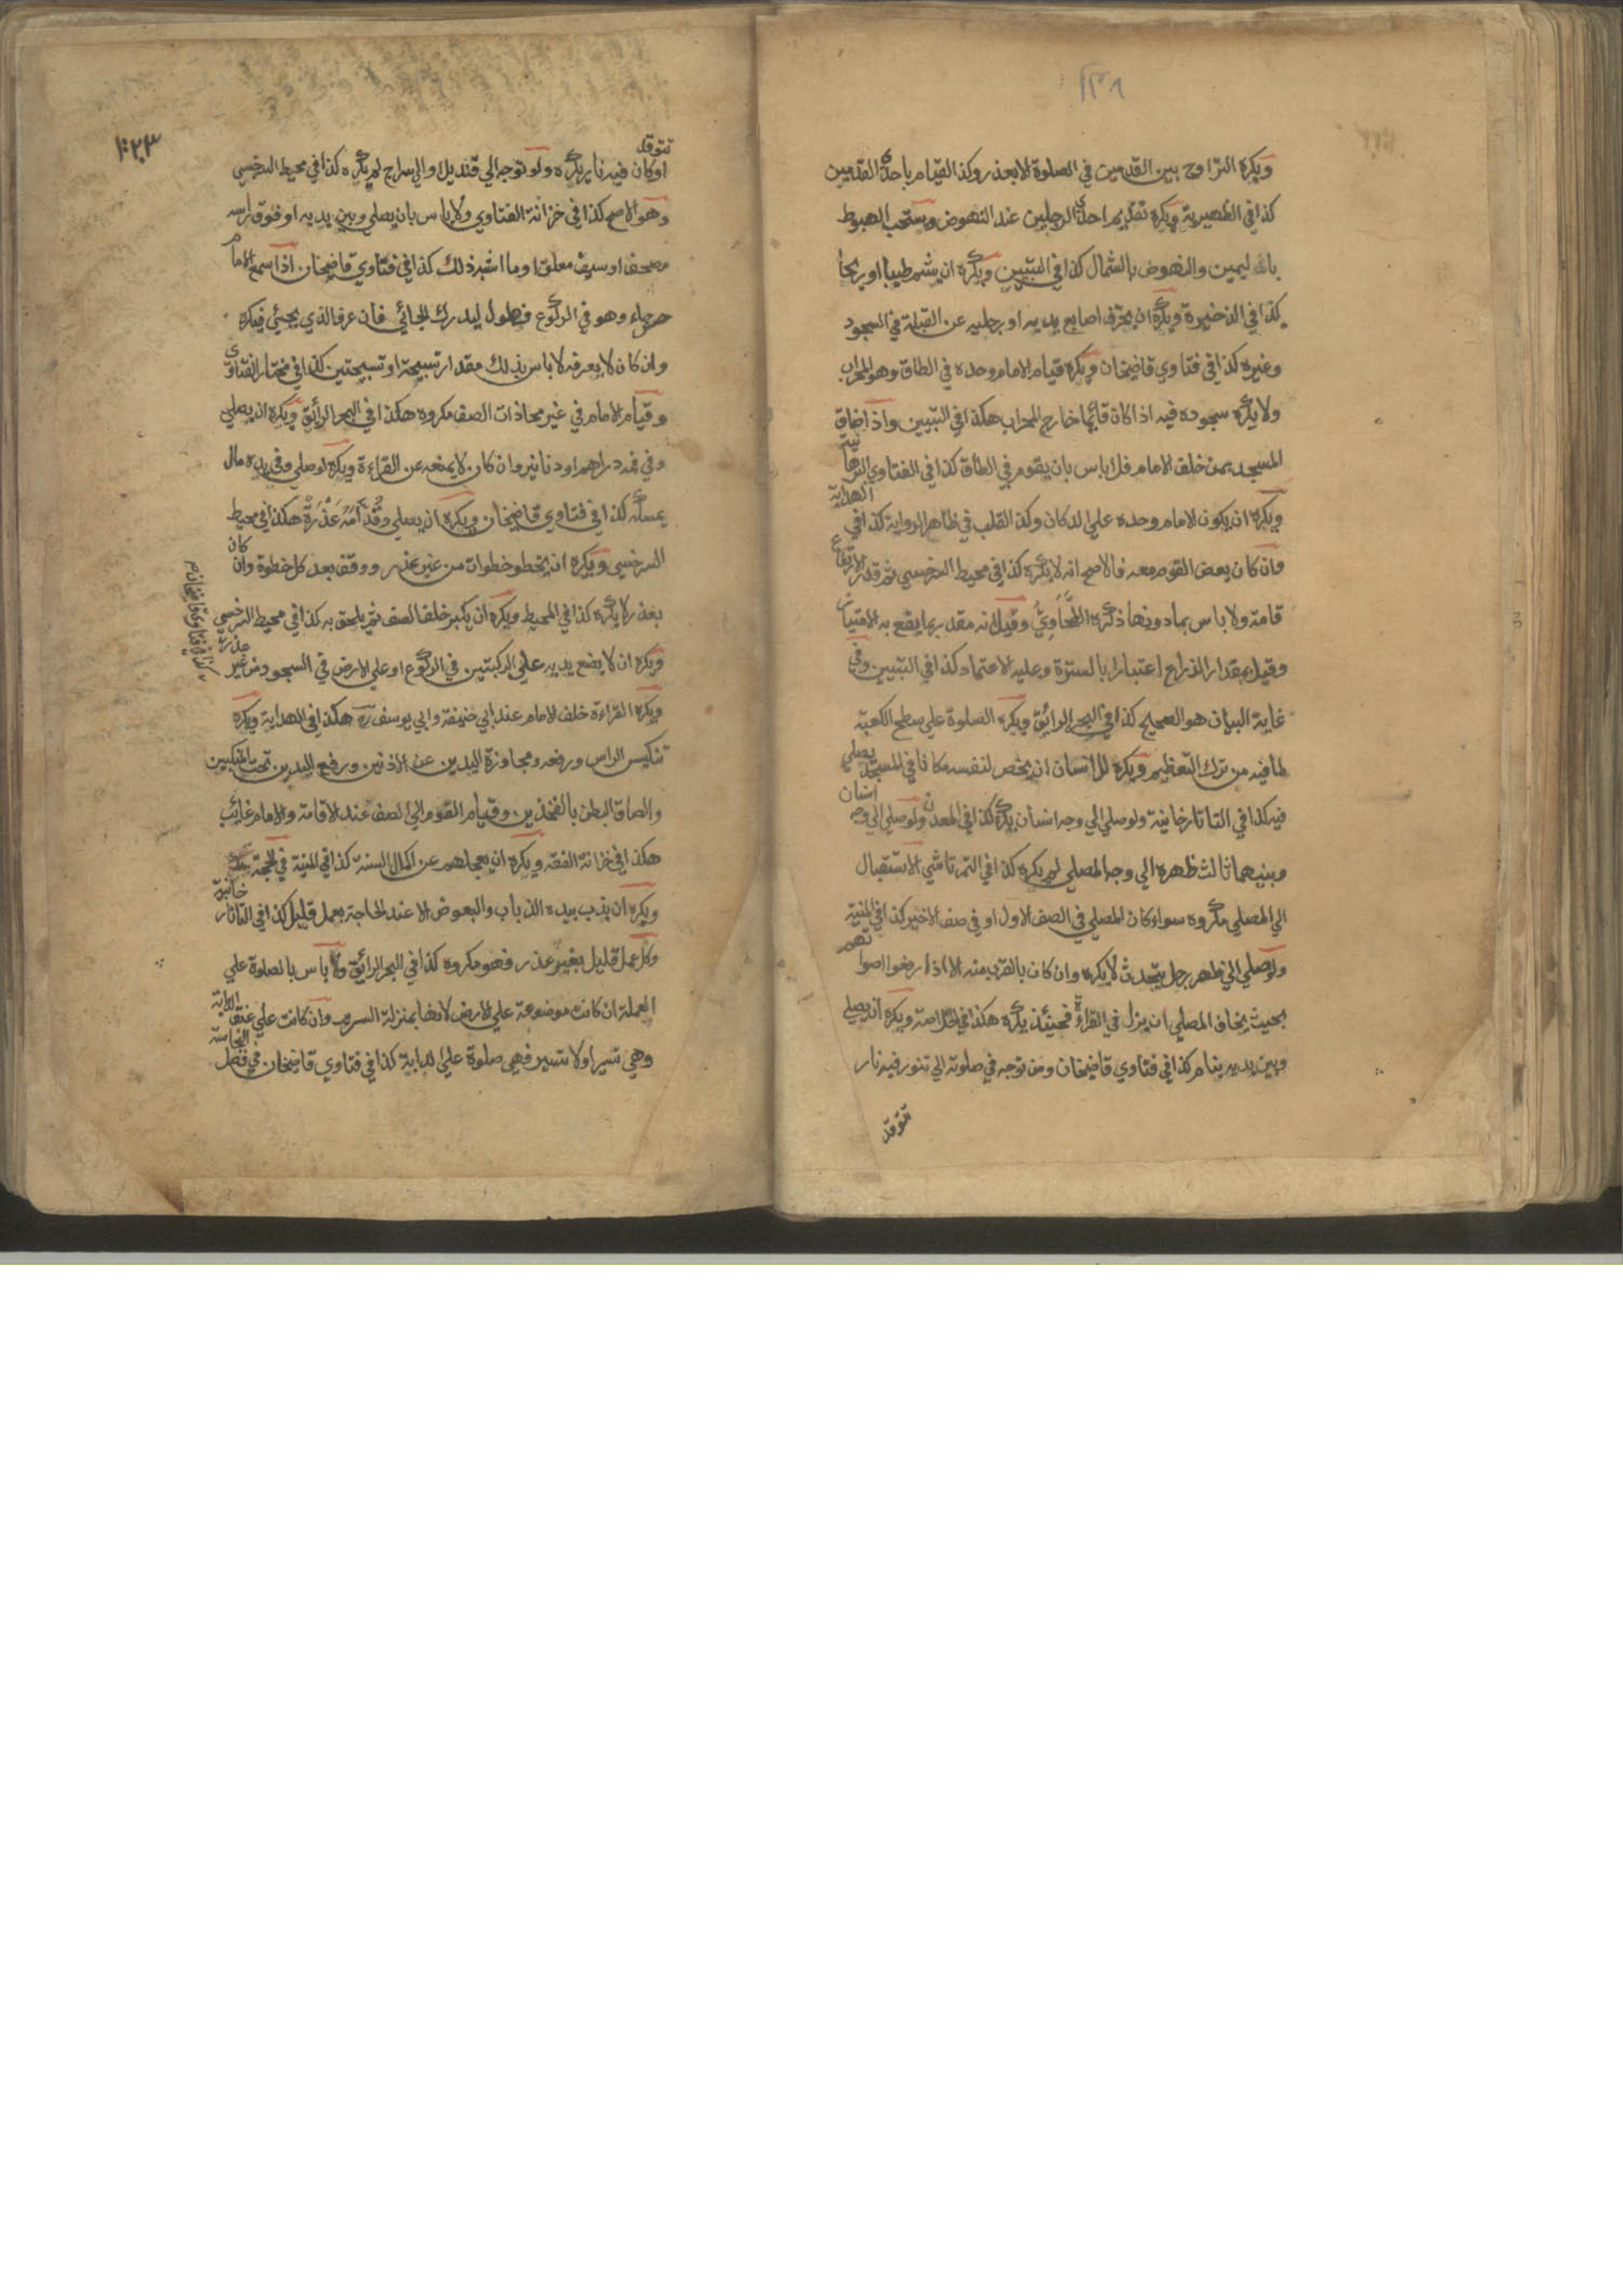 ويكره التراوح بين القدمين في الصلوة الا بعذر وكذا القيام باحدى القدمين
كذا في الظهيرية ويكره تقديم احدى الرجلين عند النهوض ويستحب الهبوط
باليمين والنهوض بالشمال كذا في التبيين ويكره ان يشم طيبا او ريحا
كذا في الذخيرة ويكره ان يحرف اصابع يديه او رجليه عن القبلة في السجود
وغيره كذا في فتاوي قاضيخان ويكره قيام الامام وحده في الطاق وهو المحراب
ولا يكره سجوده فيه اذا كان قائما خارج المحراب هكذا في التبيين واذا ضاق
المسجد بمن خلف الامام فلا باس بان يقوم في الطاق كذا في الفتاوي البرهانية
ويكره ان يكون الامام وحده علي الدكان وكذا القلب في ظاهر الرواية كذا في الهداية
وان كان بعض القوم معه فالاصح انه لا يكره كذا في محيط السرخسي ثم قدر الارتفاع
قامة ولا باس بما دونها ذكره الطحاوي وقيل انه مقدر بما يقع به الامتياز
وقيل بمقدار الذراع اعتبارا بالسترة وعليه الاعتماد كذا في التبيين وفي
غاية البيان هو الصحيح كذا في البحر الرائق ويكره الصلوة علي سطح الكعبة
لما فيه من ترك التعظيم ويكره للانسان ان يخص لنفسه مكانا في المسجد يصلي
فيه كذا في التاتارخانية ولو صلي الي وجه انسان يكره كذا في المعدن ولو صلي الي وجه انسان
وبينهما ثالث ظهره الي وجه المصلي لم يكره كذا في التمرتاشي الاستقبال
الي المصلي مكروه سواء كان المصلي في الصف الاول او في صف الاخير كذا في المنية
ولو صلي الي ظهر رجل يتحدث لا يكره وان كان بالقرب منه الا اذا رفعوا اصواتهم
بحيث يخاف المصلي ان يزل في القراءة فحينئذ يكره هكذا في الخلاصة ويكره ان يصلي
وبين يديه نيام كذا في فتاوي قاضيخان ومن توجه في صلوته الي تنور فيه نار
تتوقد
١٠٢٣
تتوقد
او كانون فيه نار يكره ولو توجه الي قنديل او الي سراج لم يكره كذا في محيط السرخسي
وهو الاصح كذا في خزانة الفتاوي ولا باس بان يصلي وبين يديه او فوق راسه
مصحف او سيف معلق او ما اشبه ذلك كذا في فتاوي قاضيخان اذا سمع الامام
جاء وهو في الركوع فطول ليدرك الجائي فان عرف الذي يجئي فيكره
وان كان لا يعرفه لا باس بذلك مقدار تسبيحة او تسبيحتين كذا في مختار الفتاوى
وقيام الامام في غير محاذات الصف مكروه هكذا في البحر الرائق ويكره ان يصلي
وفي فمه دراهم او دنانير وان كان لا يمنعه عن القراءة ويكره لو صلي وفي يده مال
يمسكه كذا في فتاوي قاضيخان ويكره ان يصلي وقدامه عذرة هكذا في محيط
السرخسي ويكره ان يخطو خطوات من غير عذر ووقف بعد كل خطوة وان كان
بعذر لا يكره كذا في المحيط ويكره ان يكبر خلف الصف ثم يلحق به كذا في محيط السرخسي
ويكره ان لا يضع يديه علي الركبتين في الركوع او علي الارض في السجود من غير عذر
كذا في فتاوي قاضيخان
ويكره القراءة خلف الامام عند ابي حنيفة وابي يوسف ره هكذا في الهداية ويكره
تنكيس الراس ورفعه ومجاوزة اليدين عن الاذنين ورفع اليدين تحت المنكبين
والصاق البطن بالفخذين وقيام القوم الي الصف عند الاقامة والامام غائب
هكذا في خزانة الفقه ويكره ان يعجلهم عن اكمال السنة كذا في المنية في الحجة
ويكره ان يذب بيده الذباب والبعوض الا عند الحاجة بعمل قليل كذا في التاتارخانية
وكل عمل قليل بغير عذر فهو مكروه كذا في البحر الرائق ولا باس بالصلوة علي
العجلة ان كانت موضوعة علي الارض لانها بمنزلة السرير وان كانت علي عنق الدابة
وهي تسير اولا تسير فهي صلوة علي الدابة كذا في فتاوي قاضيخان في فصل النجاسة